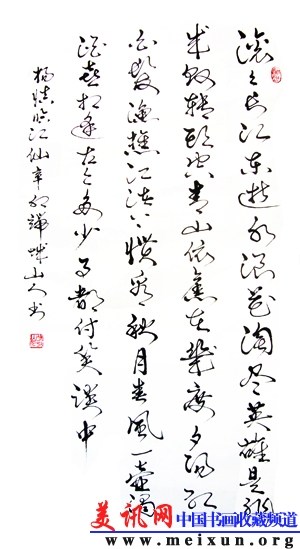 滚々长江东逝水浪花淘尽英雄是非
成败转头空青山依旧在几度夕阳红
白发渔樵江渚上惯看秋月春风一壶浊
酒喜相逢古今多少事都付笑谈中
杨慎临江仙辛卯 山人书
美讯网 中国书画收藏频道
www.meixun.org